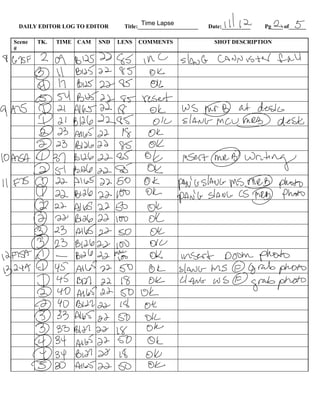 DAILY EDITOR LOG TO EDITOR Title: Time Lapse Date: 11/12 Pg 2 of 5
Scene # TK. TIME CAM SND LENS COMMENTS SHOT DESCRIPTION
2 09 B125 22 85 INC SLANG CANNISTER fall
3 11 B125 22 85 OK
B125 22 85 OK
5 54 B125 22 85 reset
1 21 A165 22 18 OK WS MrB at desk
1 21 B126 22 85 OK SLANG MCU MrB desk
2 23 A165 22 18 OK
2 23 B126 22 85 OK
1 37 B126 22 85 OK INSERT MrB writing
2 B126 22 85 OK
11 1 22 A165 22 50 OK PAN SLANG MS MrB photo
1 22 B126 22 100 OK PAN SLANG CS MrB photo
2 22 A165 22 50 OK
2 22 B126 22 100 OK
3 23 A165 22 50 OK
3 23 B126 22 100 OK
1 — B126 22 OK insert Doom photo
1 45 A165 22 50 OK SLANG MS E grab photo
1 45 B127 22 18 OK WS E grab photo
2 40 A165 22 50 OK
2 40 B127 22 18 OK
3 33 A165 22 50 OK
3 33 B127 22 18 OK
4 34 A165 22 50 OK
4 34 B127 22 18 OK
5 30 A165 22 50 OK